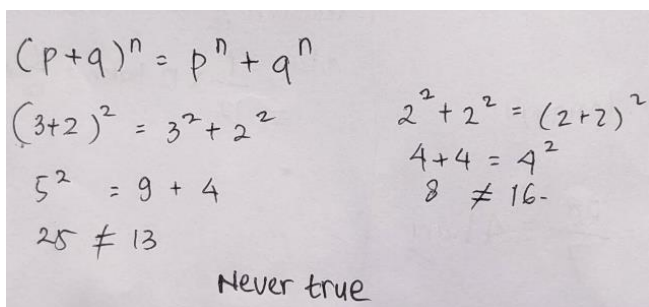 (p+q)ⁿ = pⁿ + qⁿ
(3+2)² = 3² + 2²
5² = 9 + 4
25 ≠ 13
2² + 2² = (2+2)²
4+4 = 4²
8 ≠ 16-
Never true